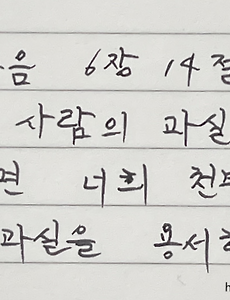 음 6장 14절
사람의 과실
면 너희 천
과실을 용서